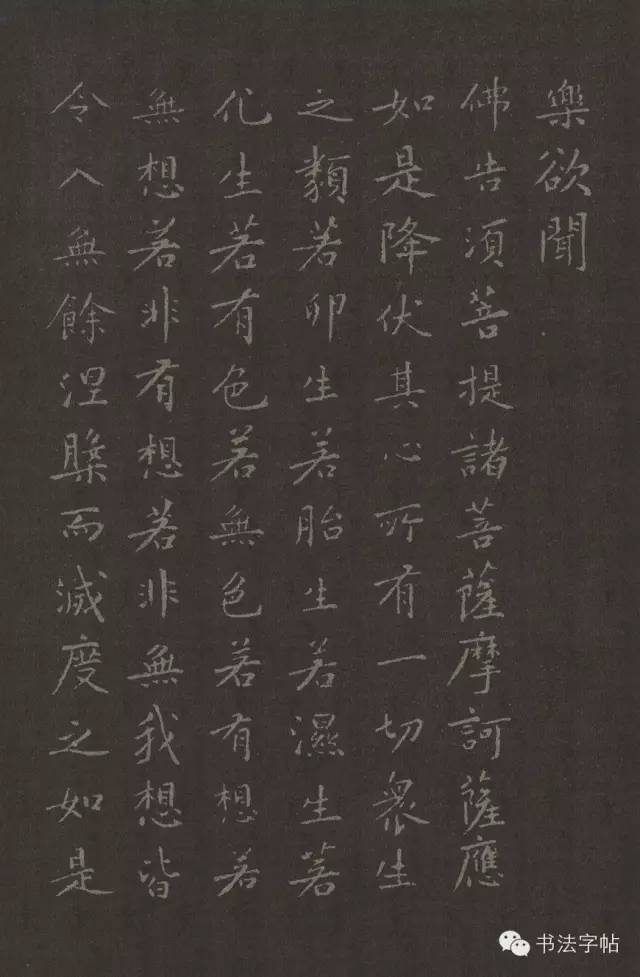 樂欲聞
佛告須菩提諸菩薩摩訶薩應
如是降伏其心所有一切眾生
之類若卵生若胎生若濕生若
化生若有色若無色若有想若
無想若非有想若非無我想皆
令入無餘涅槃而滅度之如是
书法字帖